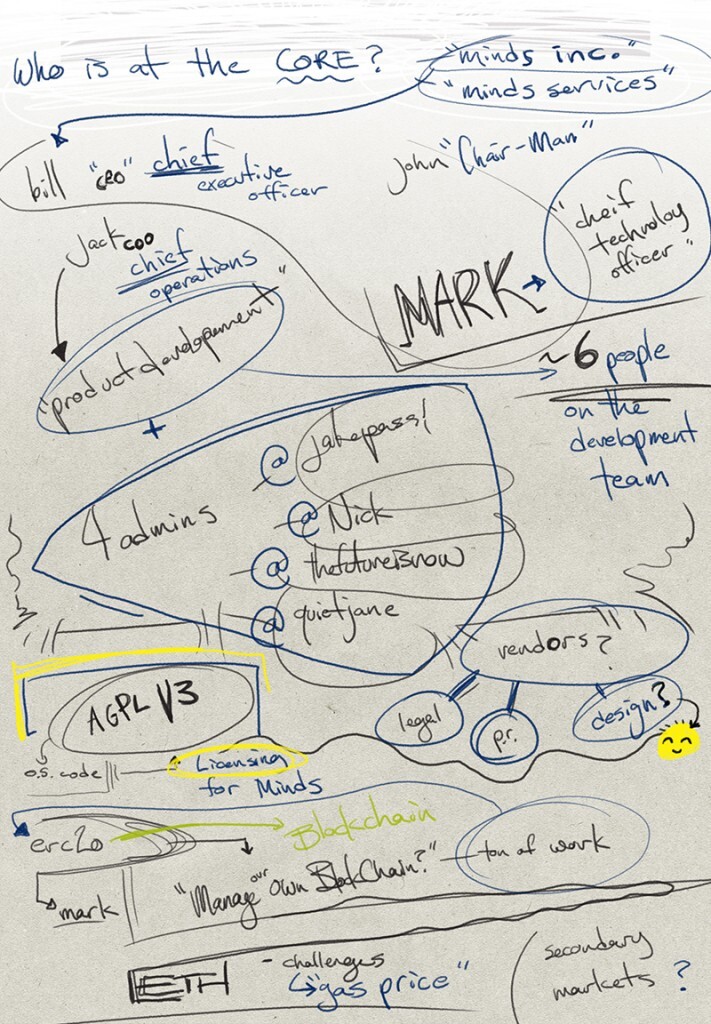 Who is at the CORE?
"minds inc."
"minds services"
bill "ceo" chief
executive
officer
John "Chair-Man"
Jack COO
chief
operations
MARK
"cheif
technoloy
officer"
"product developement"
~6 people
on the
development
team
+
4 admins
@ jakepass!
@ Nick
@ thefutureisnow
@ quietjane
vendors?
legal
p.r.
design?
AGPL V3
o.s. code
Licensing
for Minds
erc20
Blockchain
mark
"Manage our own BlockChain?" — ton of work
ETH
- challenges
"gas price"
secondary
markets ?